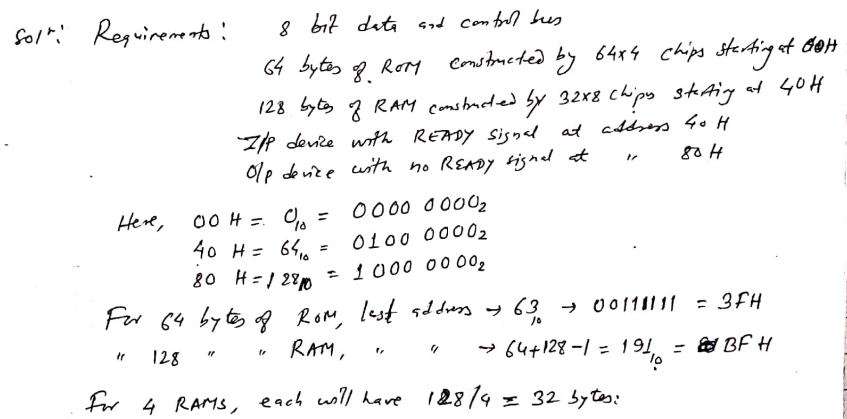 Solⁿ: Requirements: 8 bit data and control bus
64 bytes of ROM constructed by 64x4 chips starting at 00H
128 bytes of RAM constructed by 32x8 chips starting at 40H
I/P device with READY signal at address 40 H
O/p device with no READY signal at " 80 H
Here, 00 H = 0₁₀ = 0000 0000₂
40 H = 64₁₀ = 0100 0000₂
80 H = 128₁₀ = 1000 0000₂
For 64 bytes of ROM, last address → 63₁₀ → 00111111 = 3FH
" 128 " " RAM, " " → 64+128-1 = 191₁₀ = BF H
For 4 RAMS, each will have 128/4 = 32 bytes: